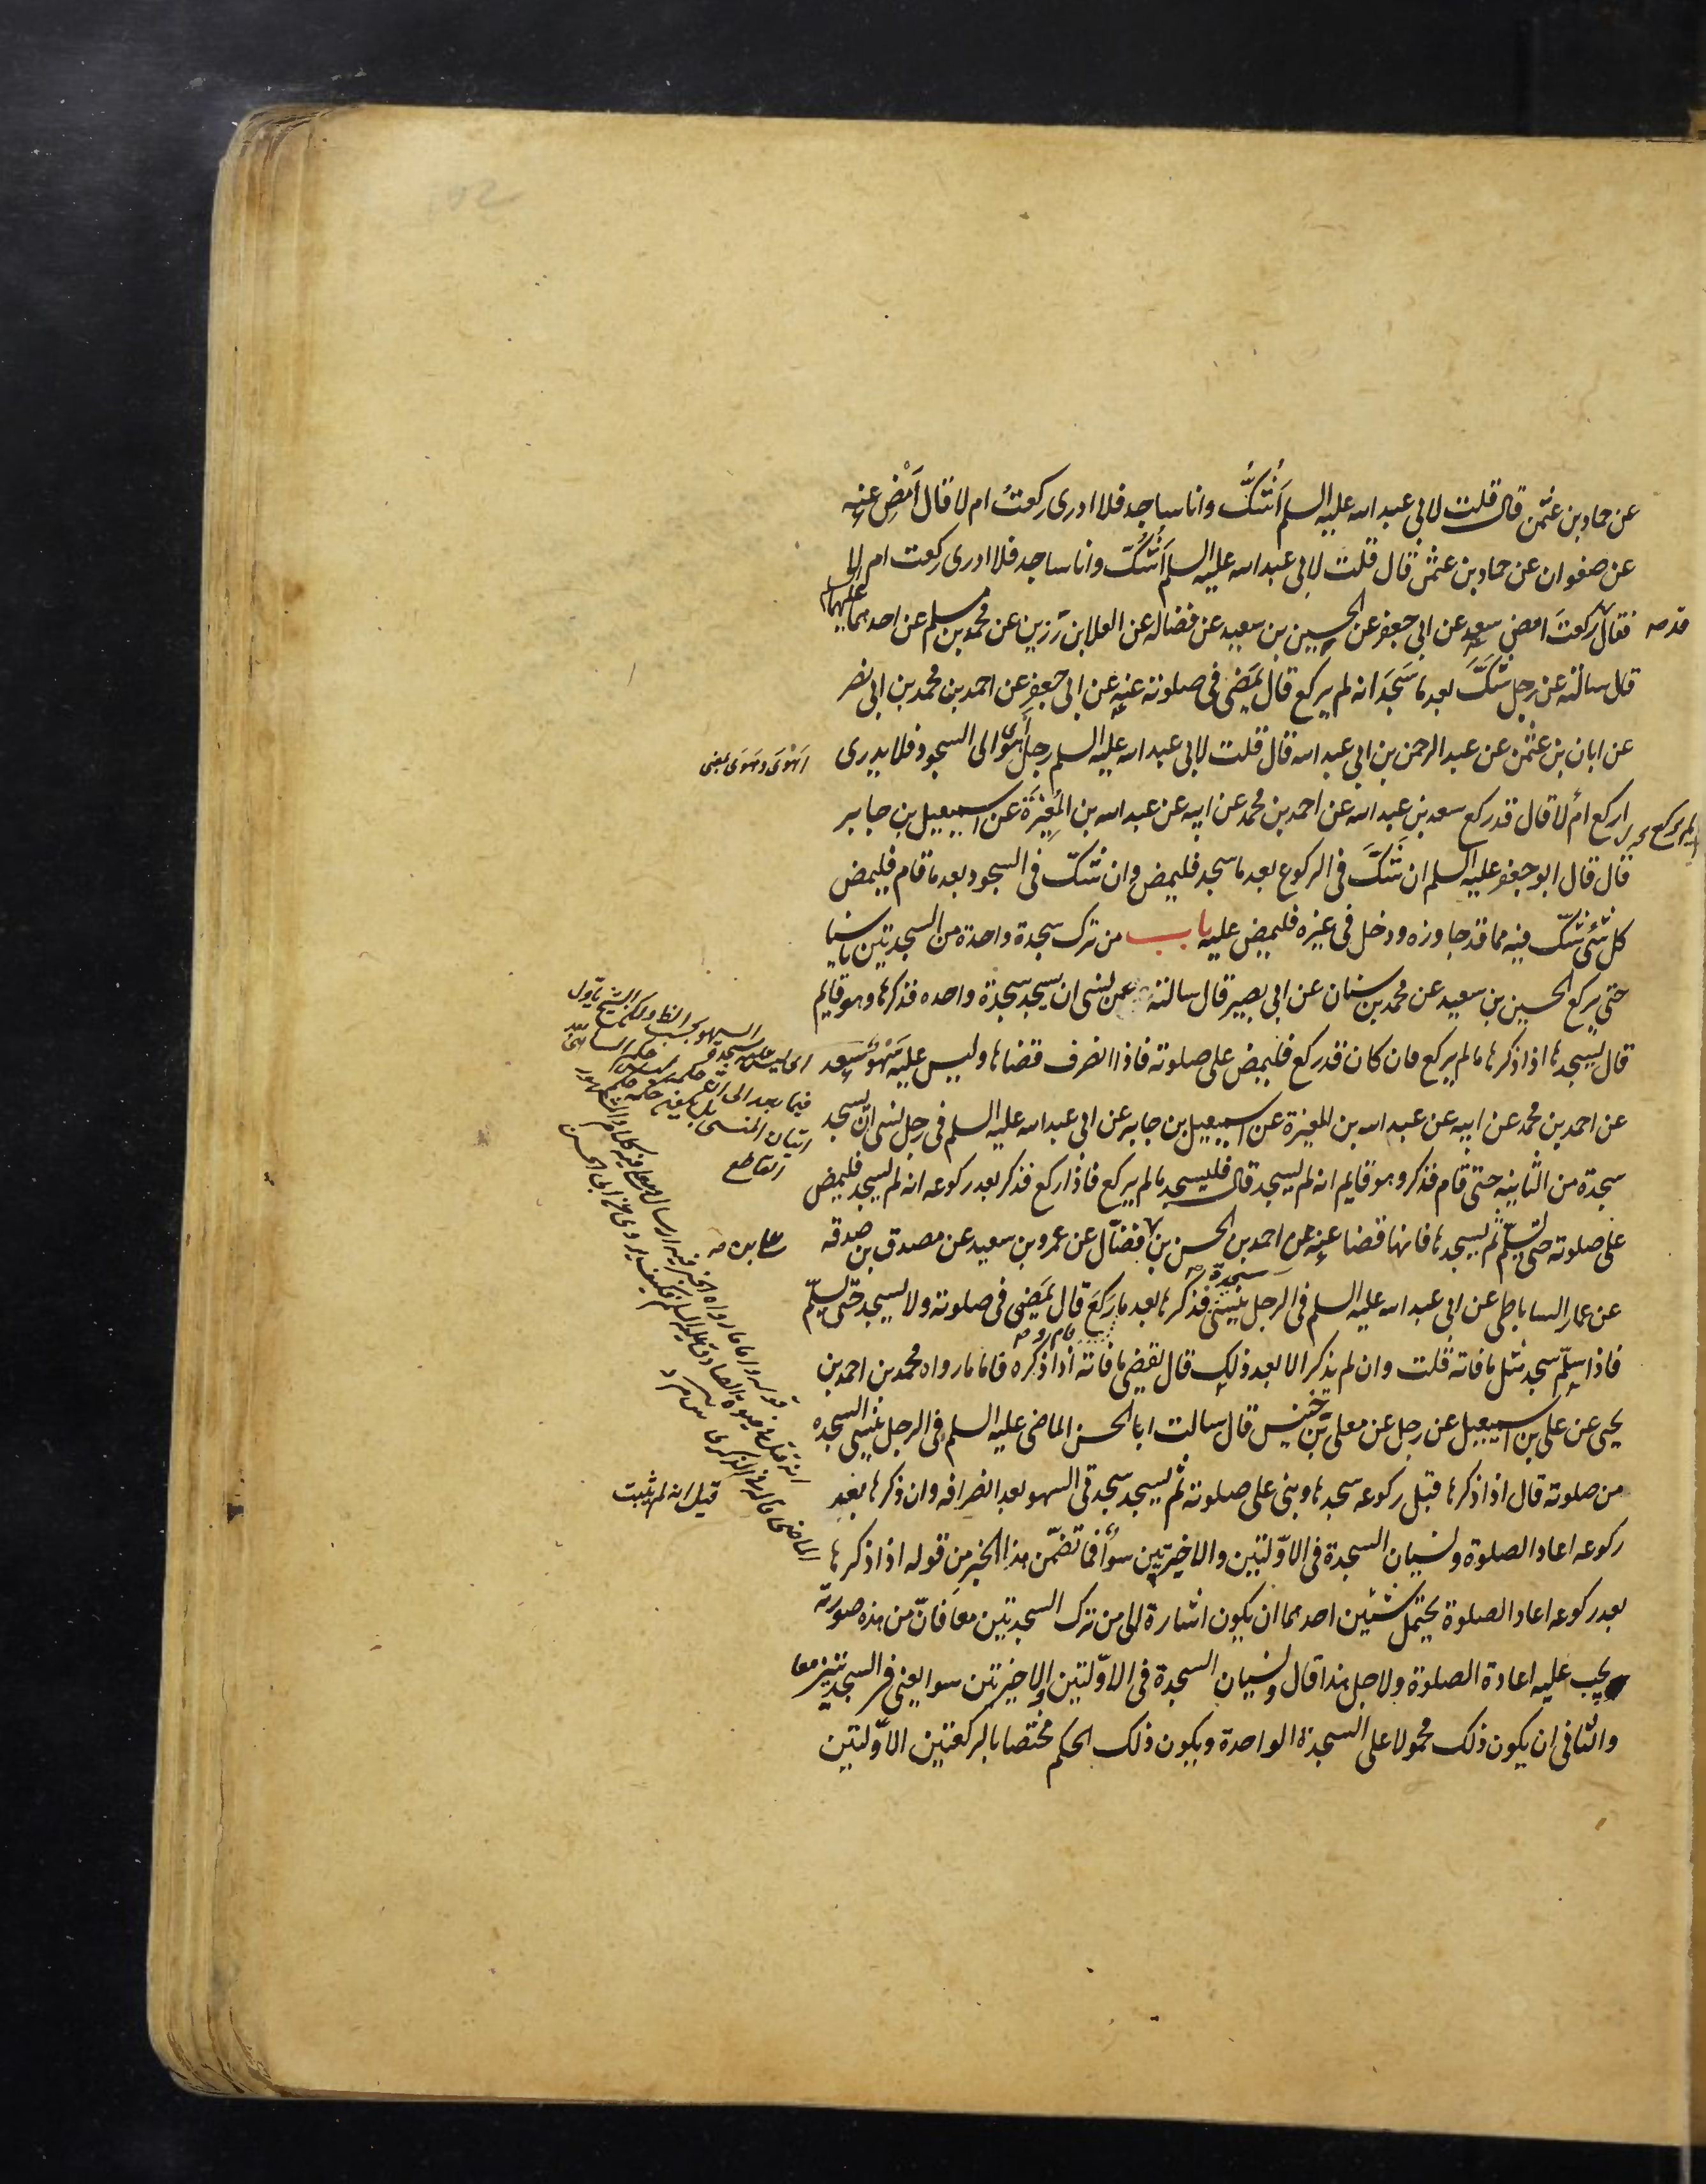 عن حماد بن عثمن قال قلت لابى عبد الله عليه السلم أَشُكُّ وانا ساجد فلا ادرى ركعتُ ام لا قال اَمْضِ عنه
عن صفوان عن حماد بن عثمن قال قلت لابى عبد الله عليه السلم أَشُكُّ وانا ساجد فلا ادرى ركعت ام لا
فقال ركعتَ امض سعد عن ابى جعفر عن الحسين بن سعيد عن فضاله عن العلا بن رزين عن محمد بن مسلم عن احدهما عليهما السلم
قد صه
قال سالته عن رجل شَكَّ بعد ما سَجَدَ انه لم يركع قال يَمضى فى صلوته عنه عن ابى جعفر عن احمد بن محمد بن ابى نصر
عن ابان بن عثمن عن عبد الرحمن بن ابى عبد الله قال قلت لابى عبد الله عليه السلم رجل أَهْوَى الى السجود فلا يدرى
اَهْوَى وهَوَى بمعنى
اركع أم لا قال قد ركع سعد بن عبد الله عن احمد بن محمد عن ابيه عن عبد الله بن المُغِيْرَة عن اسمعيل بن جابر
ام لم يركع
قال قال ابو جعفر عليه السلم ان شَكَّ فى الركوع بعد ما سجد فليمض وان شكّ فى السجود بعد ما قام فليمض
كل شئ شكّ فيه مما قد جاوزه ودخل فى غيره فليمض عليه باب من ترك سجدة واحدة من السجدتين ناسيا
حتى يركع الحسين بن سعيد عن محمد بن سنان عن ابى بصير قال سالته عمن نسى ان يسجد سجدة واحده فذكرها وهو قايم
قال يسجدها اذا ذكرها ما لم يركع فان كان قد ركع فليمض على صلوته فاذا انصرف قضاها وليس عليه سَهْوٌ سعد
عن احمد بن محمد عن ابيه عن عبد الله بن المغيرة عن اسمعيل بن جابر عن ابى عبد الله عليه السلم فى رجل نسى ان يسجد
سجدة من الثانيه حتى قام فذكر وهو قايم انه لم يسجد قال فليسجد ما لم يركع فاذا ركع فذكر بعد ركوعه انه لم يسجد فليمض
على صلوته حتى يسلّم ثم يسجدها فانها قضا عنه عن احمد بن الحسن بن فضّال عن عمرو بن سعيد عن مصدق بن صدقه
على بدل صه
عن عمار الساباطى عن ابى عبد الله عليه السلم فى الرجل ينسى سجدة فذكرها بعد ما رَكَعَ قال يَمَضِى فى صلوته ولا يسجد حتّى يسلّم
قام و صه
فاذا سلّم سجد مثل ما فاته قلت وان لم يذكر الا بعد ذلك قال يقضى ما فاته اذا ذكره فاما ما رواه محمد بن احمد بن
يحيى عن على بن اسمعيل عن رجل عن معلى بن خنيس قال سالت ابا الحسن الماضى عليه السلم فى الرجل ينسى السجده
من صلوته قال اذا ذكرها قبل ركوعه سجدها وبنى على صلوته ثم يسجد سجدتى السهو بعد انصرافه وان ذكرها بعد
ركوعه اعاد الصلوة ونسيان السجدة فى الاوّلتين والاخيرتين سوآءٌ فما تضمّن هذا الخبر من قوله اذا ذكرها
بعد ركوعه اعاد الصلوة يحتمل شيئين احدهما ان يكون اشارة الى من ترك السجدتين معا فانّ من هذه صورته
يجب عليه اعادة الصلوة ولاجل هذا قال ونسيان السجدة فى الاوّلتين والاخيرتين سوا يعنى فى السجدتين معا
والثانى ان يكون ذلك محمولا على السجدة الواحدة ويكون ذلك الحكم مختصا بالركعتين الاوّلتين
فيما بعد الى ان
اتيان المنسى بل يكفيه
القاطع
قوله واما ما رواه
قيل انه لم يثبت